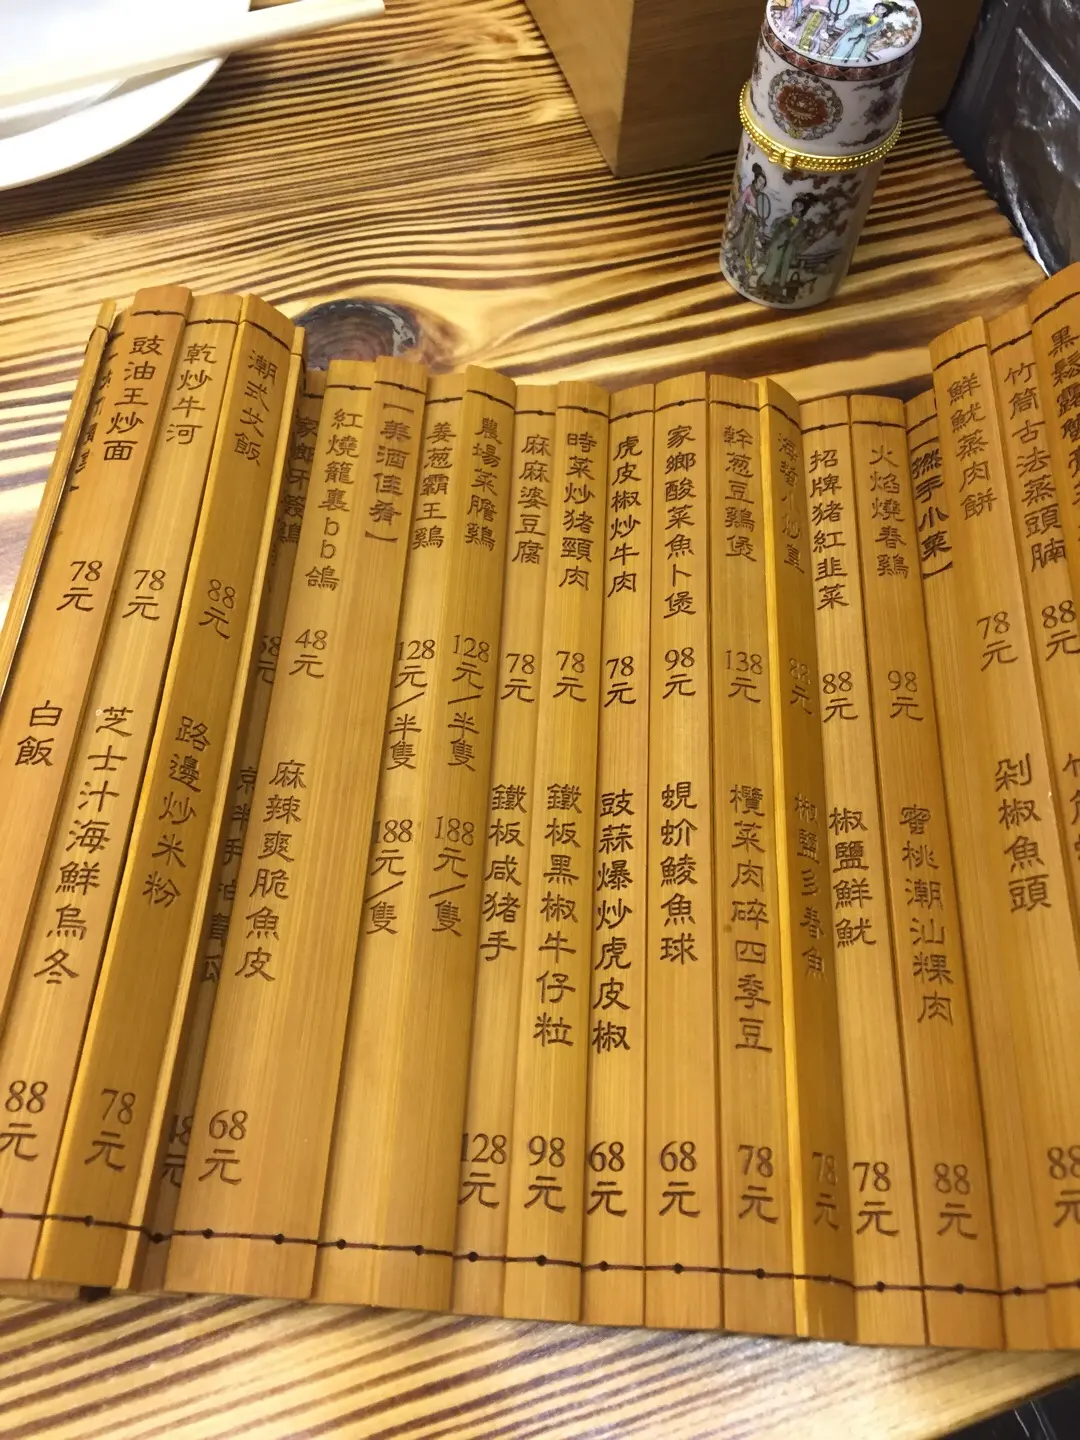 黑鬆露蟹
竹筒古法蒸頭腩 88元 88元
鮮魷蒸肉餅 78元 剁椒魚頭
【撚手小菜】
火焰燒春鷄 98元 蜜桃潮汕粿肉 88元
招牌猪紅韭菜 88元 椒鹽鮮魷 78元
88元 椒鹽多春魚 78元
幹葱豆鷄煲 138元 欖菜肉碎四季豆 78元
家鄉酸菜魚卜煲 98元 蜆蚧鯪魚球 68元
虎皮椒炒牛肉 78元 豉蒜爆炒虎皮椒 68元
時菜炒猪頸肉 78元 鐵板黑椒牛仔粒 98元
麻麻婆豆腐 78元 鐵板咸猪手 128元
農場菜膽鷄 128元/半隻 188元/隻
姜葱霸王鷄 128元/半隻 188元/隻
【美酒佳肴】
紅燒籠裏bb鴿 48元 麻辣爽脆魚皮 68元
潮式艾飯 88元 路邊炒米粉 78元
乾炒牛河 78元 芝士汁海鮮烏冬 88元
豉油王炒面 78元 白飯